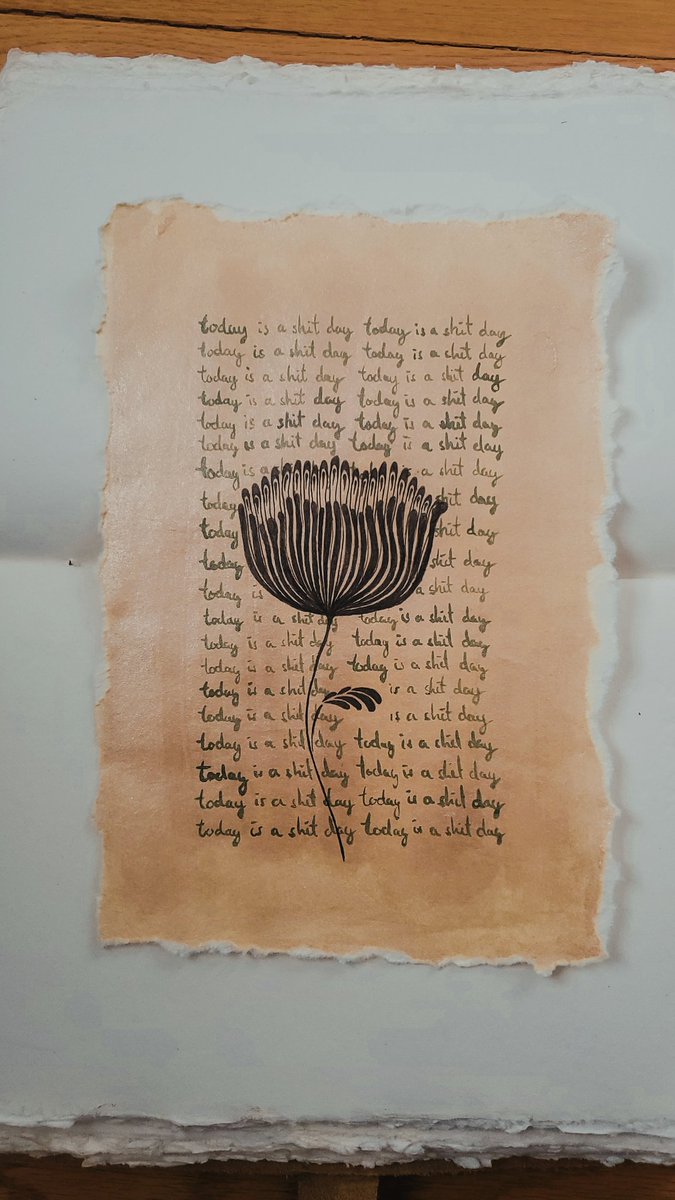 today is a shit day today is a shit day
today is a shit day today is a shit day
today is a shit day today is a shit day
today is a shit day today is a shit day
today is a shit day today is a shit day
today is a shit day today is a shit day
today is a shit day
today shit day
today shit day
today shit day
today is a shit day
today is a shit day today is a shit day
today is a shit day today is a shit day
today is a shit day today is a shit day
today is a shit day is a shit day
today is a shit day is a shit day
today is a shit day today is a shit day
today is a shit day today is a shit day
today is a shit day today is a shit day
today is a shit day today is a shit day